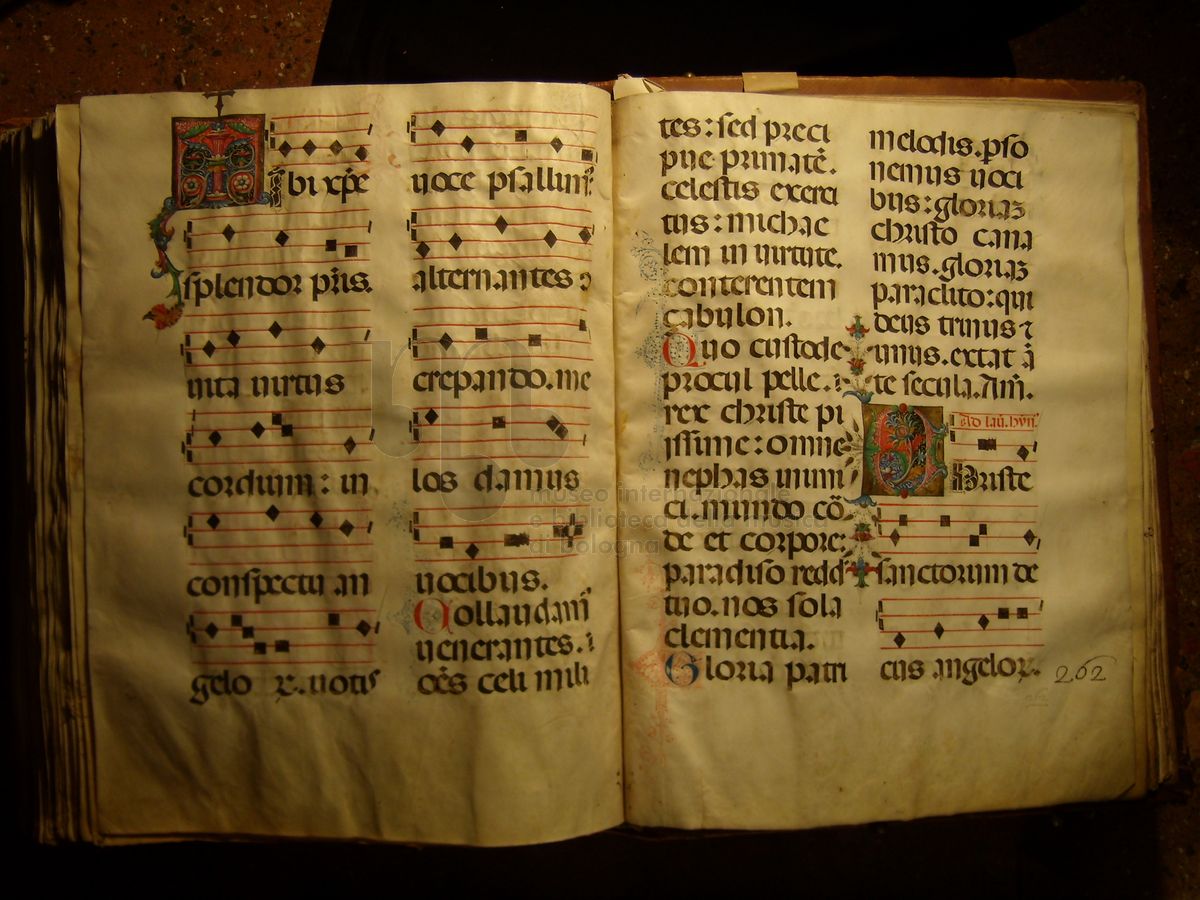 Tibi xp̄e
splendor pr̄is.
uita uirtus
cordium: in
conspectu an
gelo ꝝ. uotis
uoce psallim̄?
alternantes ꝛ
crepando. me
los damus
uocibus.
Collaudam̄
uenerantes. i
oēs celi mili
tes: sed preci
pue primatē.
celestis exerci
tus: michae
lem in uirtute.
conterentem
zabulon.
Quo custode
procul pelle. i
rex christe pi
issime: omne
nephas inimi
ci. mundo cō
de et corpore:
paradiso redd
tuo. nos sola
clementia.
Gloria patri
melodis. pso
nemus uoci
bus: gloriaꝫ
christo cana
mus. gloriaꝫ
paraclito: qui
deus trinus ⁊
unus. extat ā
te secula. Am̄.
Ad lau. hyn.
Christe
sanctorum de
cus angeloꝝ.
262
museo internazionale
e biblioteca della musica
di bologna